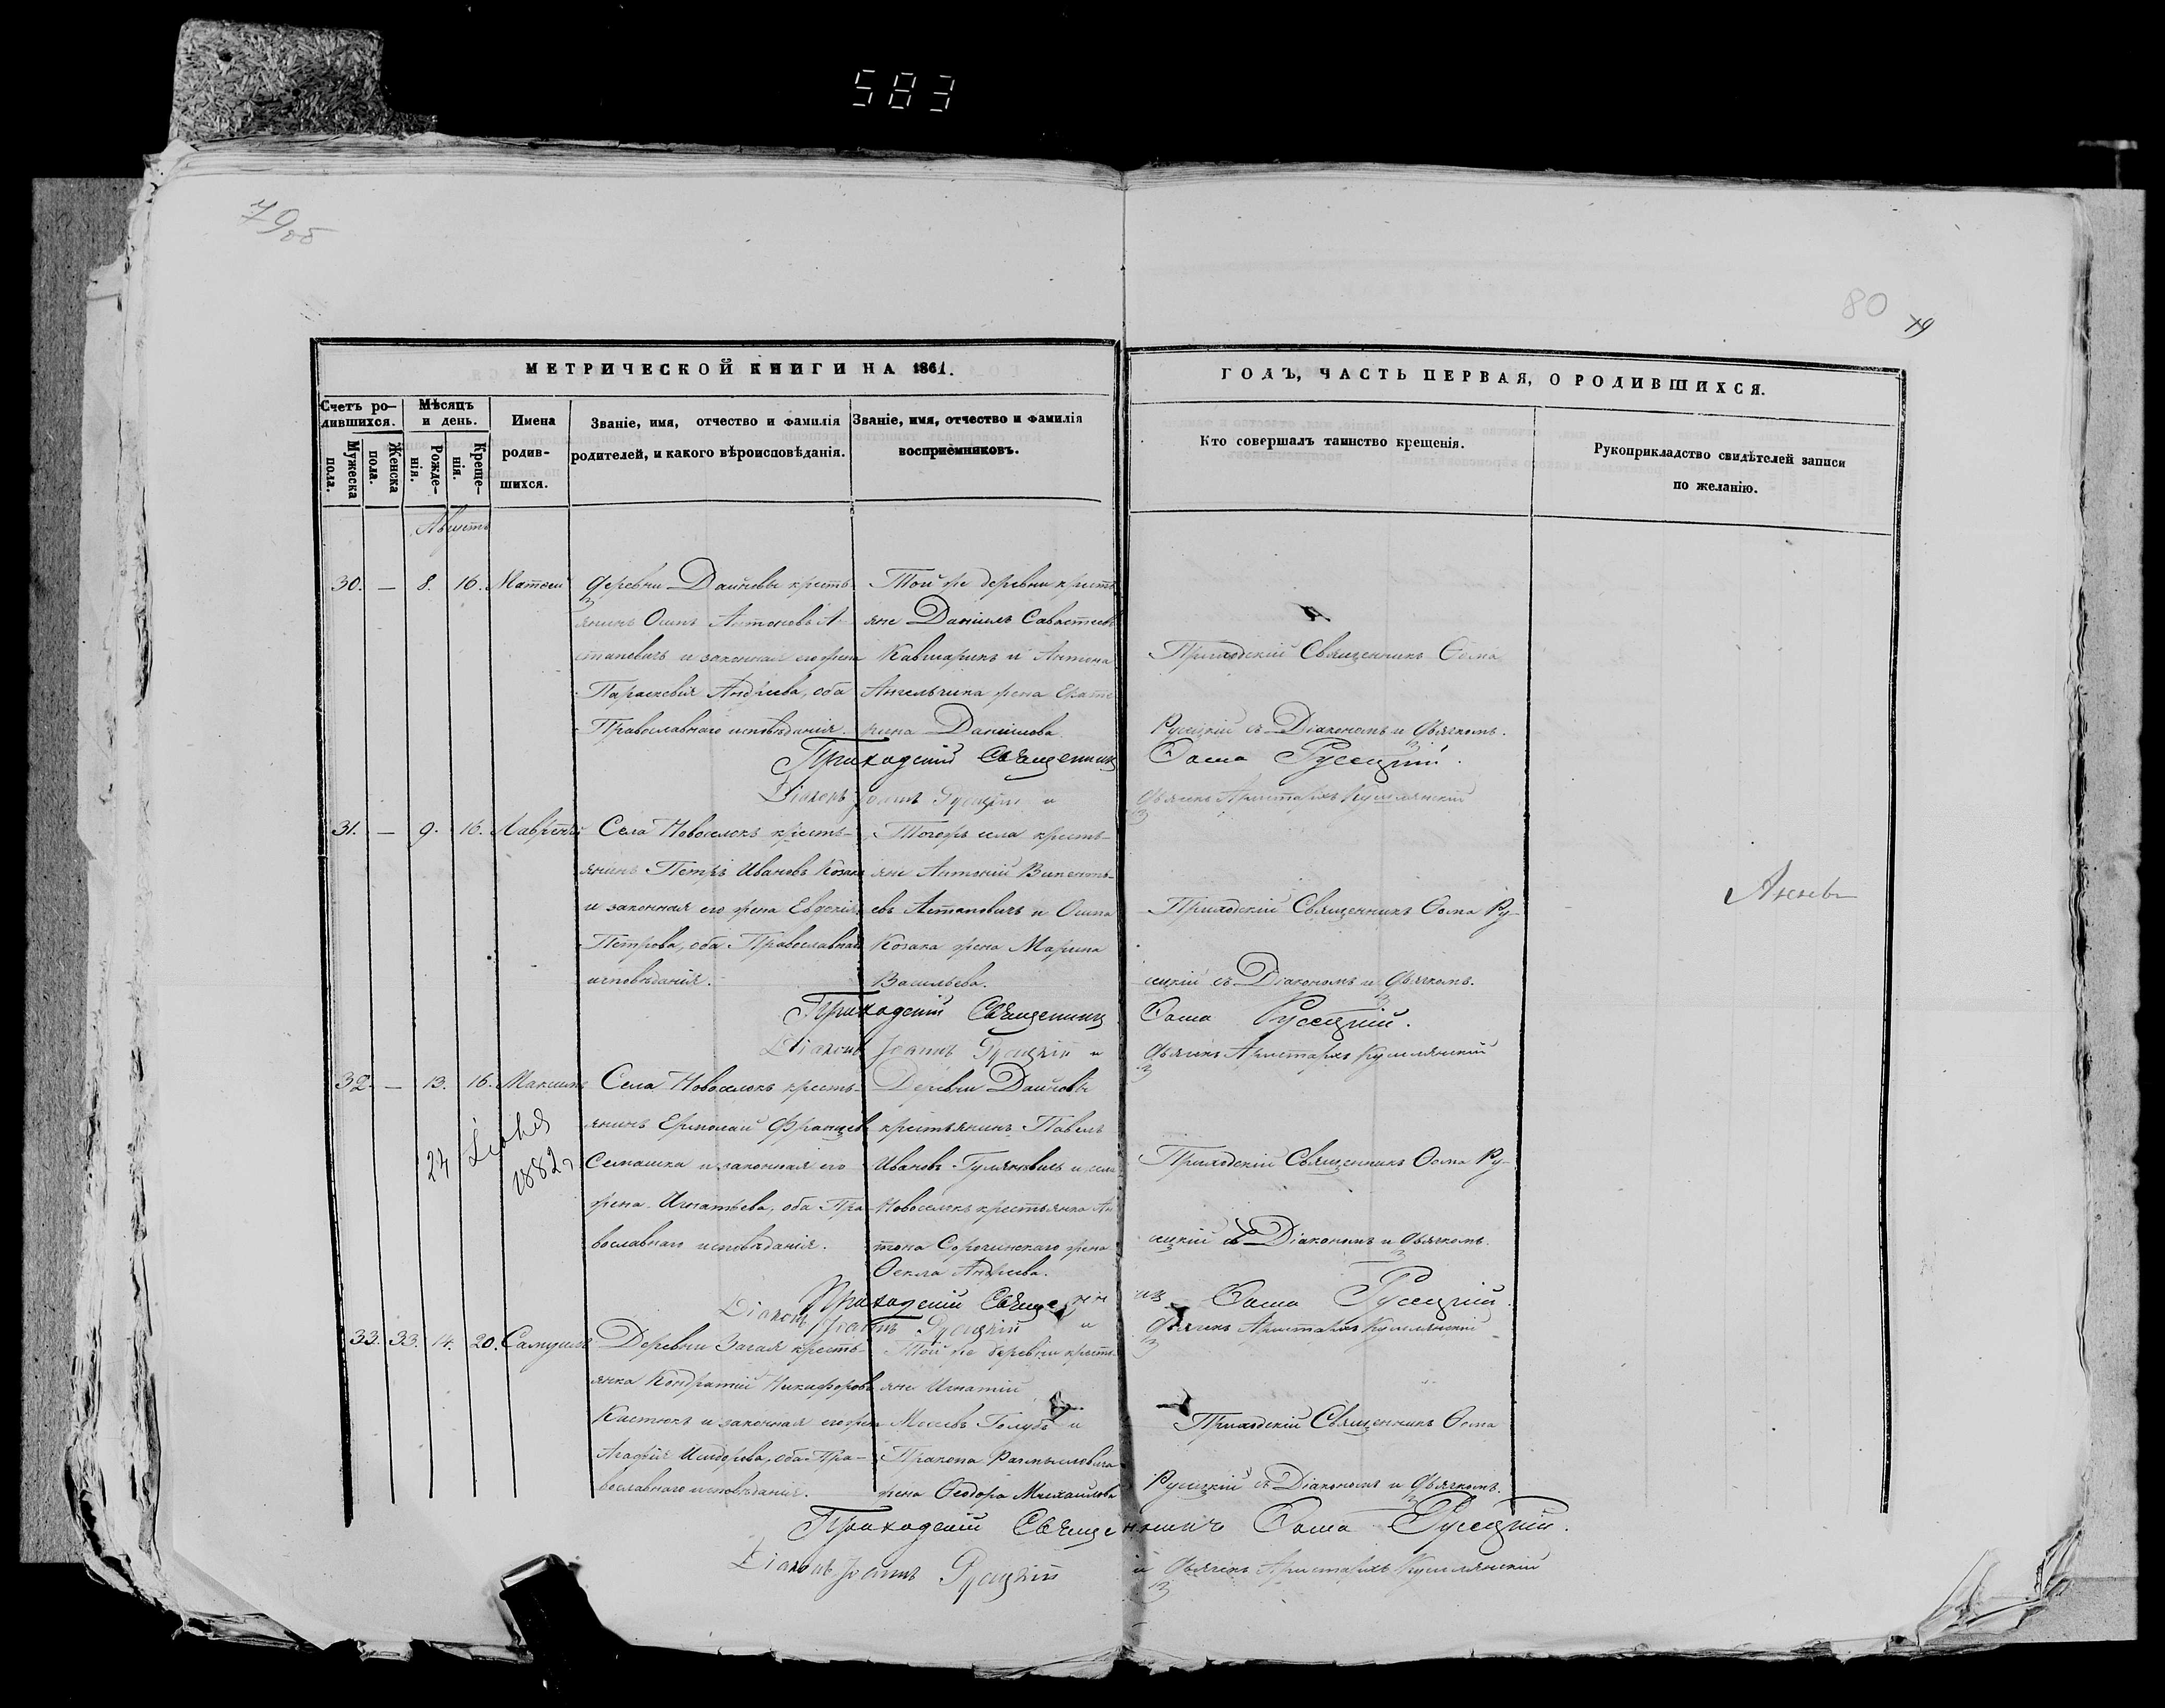 583
79об
80
79
МЕТРИЧЕСКОЙ КНИГИ НА 1861.
ГОДЪ, ЧАСТЬ ПЕРВАЯ, О РОДИВШИХСЯ.
Счетъ ро-
дившихся.
Мужеска
пола.
Женска
пола.
Мѣсяцъ
и день.
Рожде-
нія.
Креще-
нія.
Имена
родив-
шихся.
Званіе, имя, отчество и фамилія
родителей, и какого вѣроисповѣданія.
Званіе, имя, отчество и фамилія
воспріемниковъ.
Кто совершалъ таинство крещенія.
Рукоприкладство свидѣтелей записи
по желанію.
Августъ
30. — 8. 16. Матѳей
деревни Дайновы кресть-
янинъ Осипъ Антоновъ А-
стаповичъ и законная его жена
Параскевія Андреева, оба
Православнаго исповѣданія.
Той же деревни кресть
яне Даніилъ Саватѣевъ
и Антона
жена Екате
рина Даніилова.
Приходскій Священникъ Ѳома
Русецкій съ Діакономъ и дьячкомъ.
Приходскій Священникъ Ѳома Русецкій.
Діаконъ Іоаннъ Русецкій и дьячекъ Аристархъ
31. — 9. 16. Лаврентій
Села Новоселокъ кресть-
янинъ Петръ Ивановъ Козакъ
и законная его жена Евдокія
Петрова, оба Православнаго
исповѣданія.
Тогожъ села кресть-
яне Антоній Викенть-
евъ Астаповичъ и Осипа
Козака жена Марина
Васильева.
Приходскій Священникъ Ѳома Ру-
сецкій съ Діакономъ и дьячкомъ.
Приходскій Священникъ Ѳома Русецкій.
Діаконъ Іоаннъ Русецкій и дьячекъ Аристархъ
32. — 13. 16. Максимъ
24
1882
Села Новоселокъ кресть-
янинъ Ермолай Францевъ
Семашка и законная его
жена Игнатьева, оба Пра-
вославнаго исповѣданія.
Деревни Дайновы
крестьянинъ Павелъ
Ивановъ и села
Новоселокъ крестьянка Ан
тона Сорочинскаго жена
Ѳекла Андреева.
Приходскій Священникъ Ѳома Ру-
сецкій съ Діакономъ и дьячкомъ.
Приходскій Священникъ Ѳома Русецкій.
Діаконъ Іоаннъ Русецкій и дьячекъ Аристархъ
33. 33. 14. 20. Самуилъ
Деревни кресть-
янка Кондратій Никифоровъ
Кастюкъ и законная его жена
Агафія оба Пра-
вославнаго исповѣданія.
Той же деревни кресть
яне Игнатій
Голубъ и
жена Ѳеодора Михаилова
Приходскій Священникъ Ѳома
Русецкій съ Діакономъ и дьячкомъ.
Приходскій Священникъ Ѳома Русецкій.
Діаконъ Іоаннъ Русецкій и дьячекъ Аристархъ